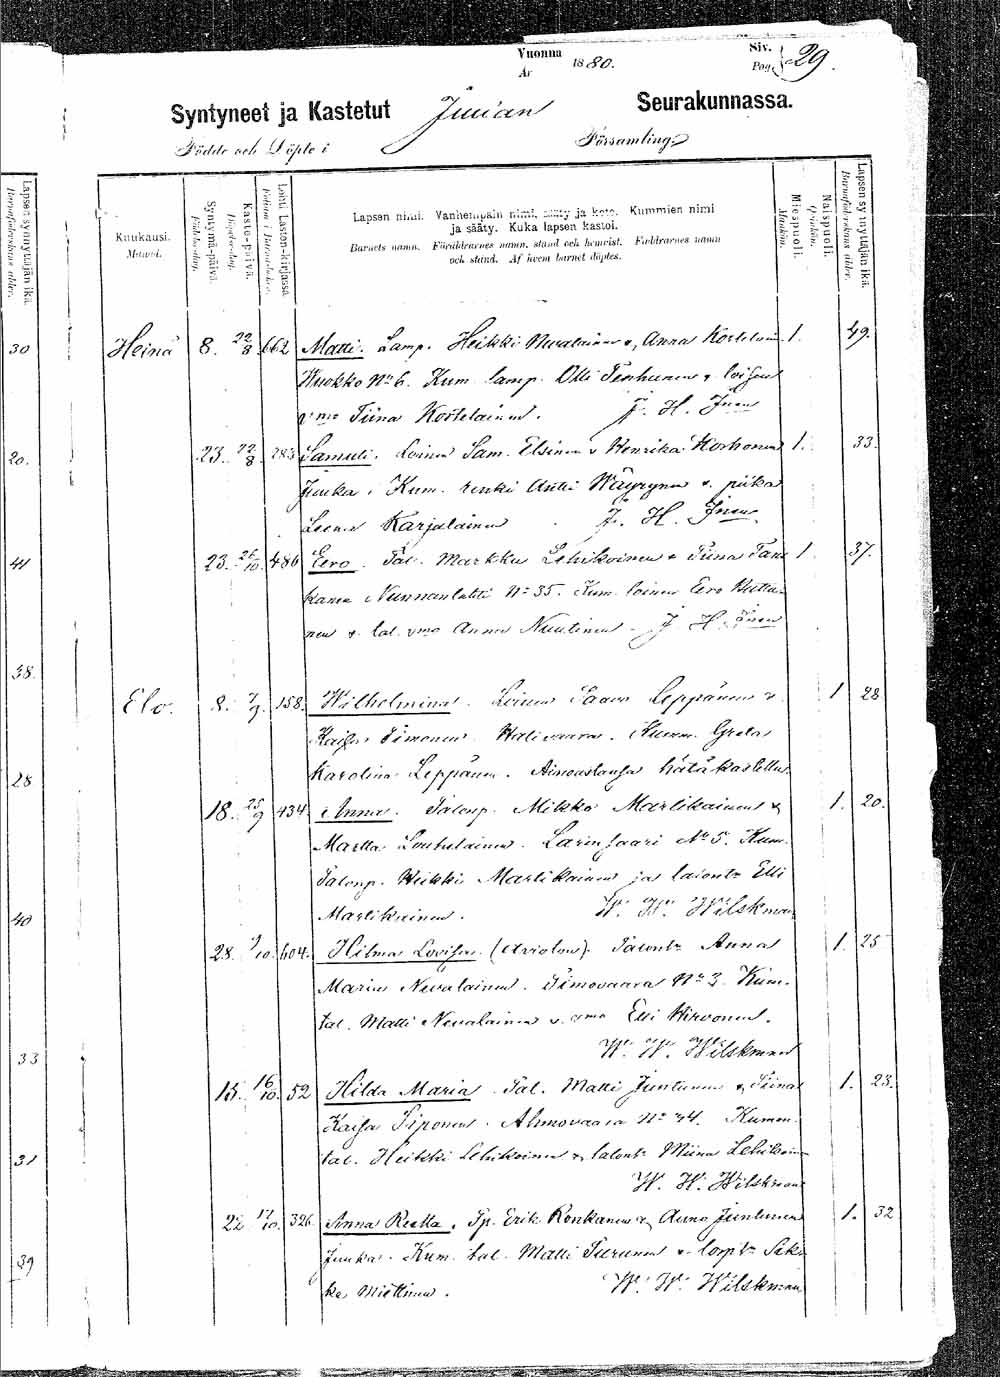 Vuonna 1880. Siv. 29.
År Pag.
Syntyneet ja Kastetut Juuan Seurakunnassa.
Födde och Döpte i Församling
Kuukausi. Månad.
Syntymä-päivä. Födelsedag.
Kaste-päivä. Döpelsedag.
Lehti Lasten-kirjassa. Folium i Barnaboken.
Lapsen nimi. Vanhempain nimi, sääty ja koto. Kummien nimi
ja sääty. Kuka lapsen kastoi.
Barnets namn. Föräldrarnes namn, stånd och hemvist. Faddrarnes namn
och stånd. Af hvem barnet döptes.
Miespuoli. Mankön.
Naispuoli. Qvinkön.
Lapsen synnyttäjän ikä. Barnaföderskans ålder.
Lapsen synnyttäjän ikä. Barnaföderskans ålder.
30
20.
41
38.
28
40
33
31
39
Heinä 8. 22/8 662 Matti. Lamp. Heikki Nevalainen &, Anna Kortelain 1. 49.
Wuokko No 6. Kum. lamp. Olli Tenhunen & loisen
vmo Tiina Kortelainen. J. H. Inen
23. 22/8. 283 Samuli. Loinen Sam. Elsinen & Henrika Korhonen 1. 33.
Juuka. Kum. renki Antti Wäyrynen & piika
Leena Karjalainen J. H. Inen
23. /10. 486 Eero. Tal. Markku Lehikoinen & Tiina Tans 1 37.
kanen Nunnanlahti No 35. Kum. loinen Eero Kuttu-
nen & tal. vmo Anna Nuutinen. J H. Inen
Elo. 8. 7/9. 158. Wilhelmina. Loinen Paavo Leppänen & 1 28
Kaisa Timonen. Halivaara. Kumm. Greta
Karolina Leppänen. Ainoastansa hätäkastettu.
18. 25/9 434 Anna. Talonp. Mikko Martikainen & 1. 20.
Martta Louhelainen. Larinsaari No 5. Kum.
Talonp. Heikki Martikainen ja talontr Elli
Martikainen. W. W. Wilskman
28. 9/10. 604. Hilma Lovisa. (Avioton). Talontr Anna 1. 25
Maria Nevalainen. Timovaara No 3. Kum.
tal. Matti Nevalainen & vmo Elli Hirvonen.
W. W. Wilskman
15. 16/10. 52 Hilda Maria. Tal. Matti Juntunen & Tiina 1. 23.
Kaisa Piponen. Ahmovaara No 34. Kumm.
tal. Heikki Lehikoinen & talontr Miina Lehikoin
W. W. Wilskman
22 17/10. 326. Anna Reetta. Tp. Erik Ronkanen &, Anna Juntunen 1. 32
Juuka. Kum. tal. Matti Turunen & lamptr
Miettinen. W. W. Wilskman